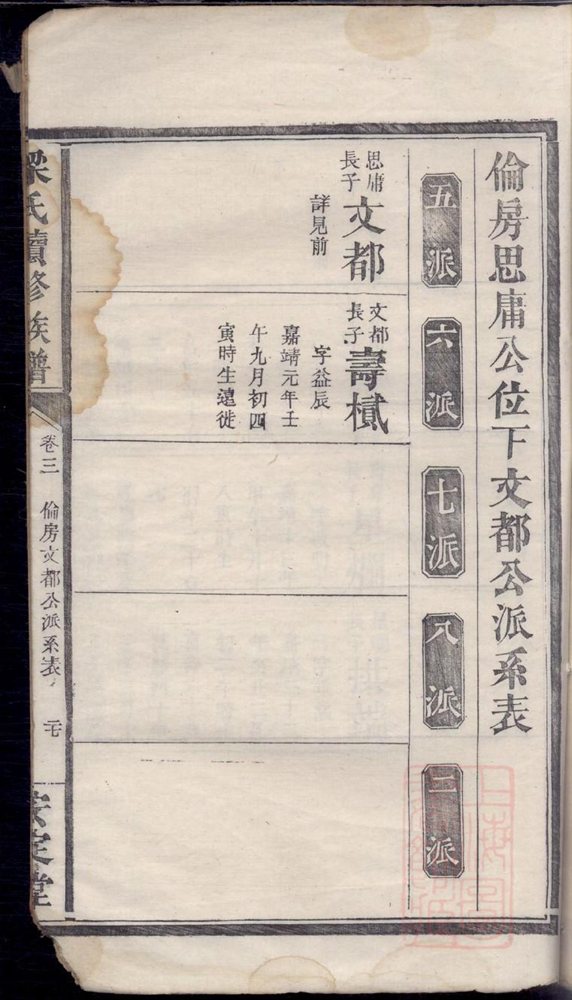 倫房思庸公位下文都公派系表
五派
六派
七派
八派
二派
思庸
長子
文都
詳見前
文都
長子
壽樲
字益辰
嘉靖元年壬
午九月初四
寅時生遠徙
梁氏續修族譜
卷三
倫房文都公派系表
安定堂